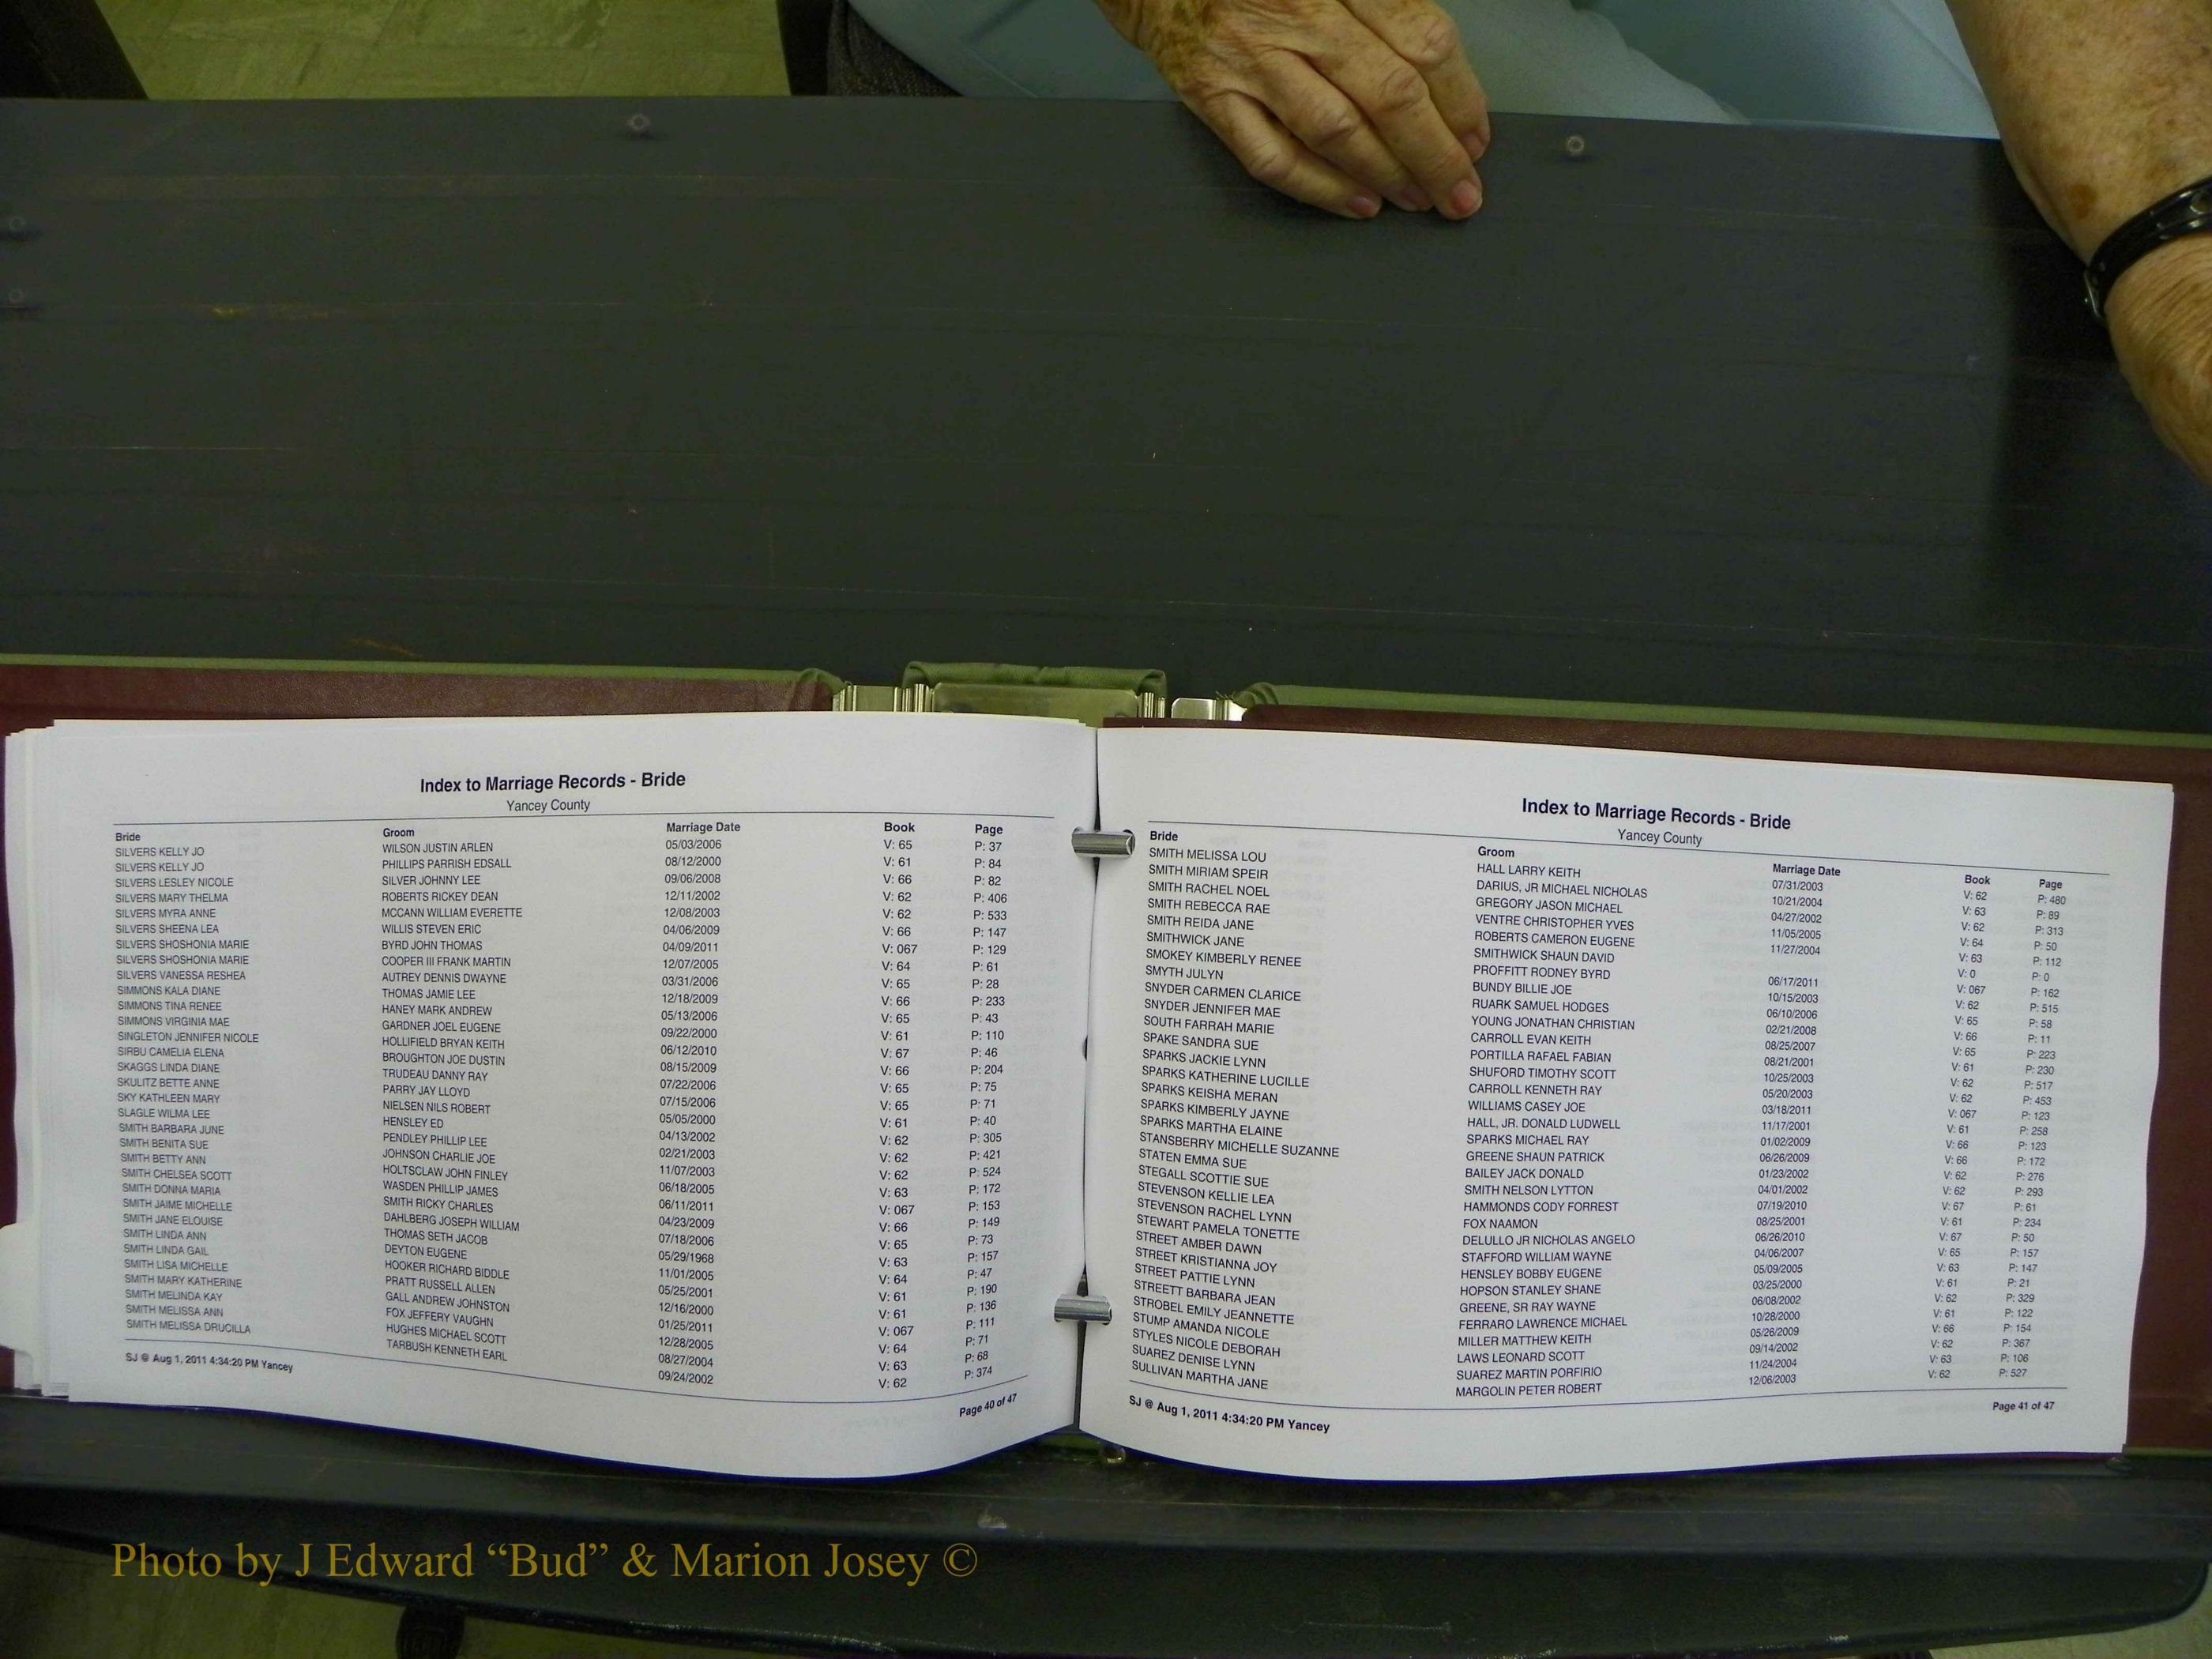 Index to Marriage Records - Bride
Yancey County
Bride Groom Marriage Date Book Page
SILVERS KELLY JO WILSON JUSTIN ARLEN 05/03/2006 V: 65 P: 37
SILVERS KELLY JO PHILLIPS PARRISH EDSALL 08/12/2000 V: 61 P: 84
SILVERS LESLEY NICOLE SILVER JOHNNY LEE 09/06/2008 V: 66 P: 82
SILVERS MARY THELMA ROBERTS RICKEY DEAN 12/11/2002 V: 62 P: 406
SILVERS MYRA ANNE MCCANN WILLIAM EVERETTE 12/08/2003 V: 62 P: 533
SILVERS SHEENA LEA WILLIS STEVEN ERIC 04/06/2009 V: 66 P: 147
SILVERS SHOSHONIA MARIE BYRD JOHN THOMAS 04/09/2011 V: 067 P: 129
SILVERS SHOSHONIA MARIE COOPER III FRANK MARTIN 12/07/2005 V: 64 P: 61
SILVERS VANESSA RESHEA AUTREY DENNIS DWAYNE 03/31/2006 V: 65 P: 28
SIMMONS KALA DIANE THOMAS JAMIE LEE 12/18/2009 V: 66 P: 233
SIMMONS TINA RENEE HANEY MARK ANDREW 05/13/2006 V: 65 P: 43
SIMMONS VIRGINIA MAE GARDNER JOEL EUGENE 09/22/2000 V: 61 P: 110
SINGLETON JENNIFER NICOLE HOLLIFIELD BRYAN KEITH 06/12/2010 V: 67 P: 46
SIRBU CAMELIA ELENA BROUGHTON JOE DUSTIN 08/15/2009 V: 66 P: 204
SKAGGS LINDA DIANE TRUDEAU DANNY RAY 07/22/2006 V: 65 P: 75
SKULITZ BETTE ANNE PARRY JAY LLOYD 07/15/2006 V: 65 P: 71
SKY KATHLEEN MARY NIELSEN NILS ROBERT 05/05/2000 V: 61 P: 40
SLAGLE WILMA LEE HENSLEY ED 04/13/2002 V: 62 P: 305
SMITH BARBARA JUNE PENDLEY PHILLIP LEE 02/21/2003 V: 62 P: 421
SMITH BENITA SUE JOHNSON CHARLIE JOE 11/07/2003 V: 62 P: 524
SMITH BETTY ANN HOLTSCLAW JOHN FINLEY 06/18/2005 V: 63 P: 172
SMITH CHELSEA SCOTT WASDEN PHILLIP JAMES 06/11/2011 V: 067 P: 153
SMITH DONNA MARIA SMITH RICKY CHARLES 04/23/2009 V: 66 P: 149
SMITH JAIME MICHELLE DAHLBERG JOSEPH WILLIAM 07/18/2006 V: 65 P: 73
SMITH JANE ELOUISE THOMAS SETH JACOB 05/29/1968 V: 63 P: 157
SMITH LINDA ANN DEYTON EUGENE 11/01/2005 V: 64 P: 47
SMITH LINDA GAIL HOOKER RICHARD BIDDLE 05/25/2001 V: 61 P: 190
SMITH LISA MICHELLE PRATT RUSSELL ALLEN 12/16/2000 V: 61 P: 136
SMITH MARY KATHERINE GALL ANDREW JOHNSTON 01/25/2011 V: 067 P: 111
SMITH MELINDA KAY FOX JEFFERY VAUGHN 12/28/2005 V: 64 P: 71
SMITH MELISSA ANN HUGHES MICHAEL SCOTT 08/27/2004 V: 63 P: 68
SMITH MELISSA DRUCILLA TARBUSH KENNETH EARL 09/24/2002 V: 62 P: 374
SJ @ Aug 1, 2011 4:34:20 PM Yancey Page 40 of 47
Index to Marriage Records - Bride
Yancey County
Bride Groom Marriage Date Book Page
SMITH MELISSA LOU HALL LARRY KEITH 07/31/2003 V: 62 P: 480
SMITH MIRIAM SPEIR DARIUS, JR MICHAEL NICHOLAS 10/21/2004 V: 63 P: 89
SMITH RACHEL NOEL GREGORY JASON MICHAEL 04/27/2002 V: 62 P: 313
SMITH REBECCA RAE VENTRE CHRISTOPHER YVES 11/05/2005 V: 64 P: 50
SMITH REIDA JANE ROBERTS CAMERON EUGENE 11/27/2004 V: 63 P: 112
SMITHWICK JANE SMITHWICK SHAUN DAVID V: 0 P: 0
SMOKEY KIMBERLY RENEE PROFFITT RODNEY BYRD 06/17/2011 V: 067 P: 162
SMYTH JULYN BUNDY BILLIE JOE 10/15/2003 V: 62 P: 515
SNYDER CARMEN CLARICE RUARK SAMUEL HODGES 06/10/2006 V: 65 P: 58
SNYDER JENNIFER MAE YOUNG JONATHAN CHRISTIAN 02/21/2008 V: 66 P: 11
SOUTH FARRAH MARIE CARROLL EVAN KEITH 08/25/2007 V: 65 P: 223
SPAKE SANDRA SUE PORTILLA RAFAEL FABIAN 08/21/2001 V: 61 P: 230
SPARKS JACKIE LYNN SHUFORD TIMOTHY SCOTT 10/25/2003 V: 62 P: 517
SPARKS KATHERINE LUCILLE CARROLL KENNETH RAY 05/20/2003 V: 62 P: 453
SPARKS KEISHA MERAN WILLIAMS CASEY JOE 03/18/2011 V: 067 P: 123
SPARKS KIMBERLY JAYNE HALL, JR. DONALD LUDWELL 11/17/2001 V: 61 P: 258
SPARKS MARTHA ELAINE SPARKS MICHAEL RAY 01/02/2009 V: 66 P: 123
STANSBERRY MICHELLE SUZANNE GREENE SHAUN PATRICK 06/26/2009 V: 66 P: 172
STATEN EMMA SUE BAILEY JACK DONALD 01/23/2002 V: 62 P: 276
STEGALL SCOTTIE SUE SMITH NELSON LYTTON 04/01/2002 V: 62 P: 293
STEVENSON KELLIE LEA HAMMONDS CODY FORREST 07/19/2010 V: 67 P: 61
STEVENSON RACHEL LYNN FOX NAAMON 08/25/2001 V: 61 P: 234
STEWART PAMELA TONETTE DELULLO JR NICHOLAS ANGELO 06/26/2010 V: 67 P: 50
STREET AMBER DAWN STAFFORD WILLIAM WAYNE 04/06/2007 V: 65 P: 157
STREET KRISTIANNA JOY HENSLEY BOBBY EUGENE 05/09/2005 V: 63 P: 147
STREET PATTIE LYNN HOPSON STANLEY SHANE 03/25/2000 V: 61 P: 21
STREETT BARBARA JEAN GREENE, SR RAY WAYNE 06/08/2002 V: 62 P: 329
STROBEL EMILY JEANNETTE FERRARO LAWRENCE MICHAEL 10/28/2000 V: 61 P: 122
STUMP AMANDA NICOLE MILLER MATTHEW KEITH 05/26/2009 V: 66 P: 154
STYLES NICOLE DEBORAH LAWS LEONARD SCOTT 09/14/2002 V: 62 P: 367
SUAREZ DENISE LYNN SUAREZ MARTIN PORFIRIO 11/24/2004 V: 63 P: 106
SULLIVAN MARTHA JANE MARGOLIN PETER ROBERT 12/06/2003 V: 62 P: 527
SJ @ Aug 1, 2011 4:34:20 PM Yancey Page 41 of 47
Photo by J Edward “Bud” & Marion Josey ©